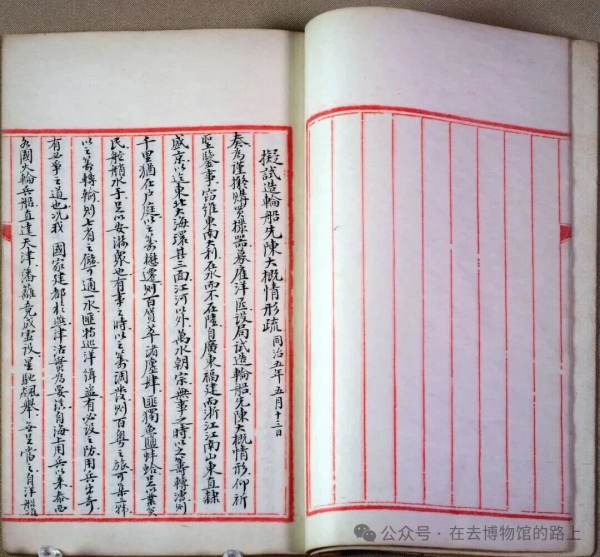 擬試造輪船先陳大概情形疏 同治五年五月十三日
奏為謹擬購買機器募雇洋匠設局試造輪船先陳大概情形仰祈
聖鑒事竊維東南大利在水而不在陸自廣東福建而浙江江南山東直隸
盛京以迄東北大海環其三面江河以外萬水朝宗無事之時以之籌轉漕則
千里猶在戶庭以之籌懋遷則百貨萃諸廛肆匪獨魚鹽蚌蛤足以業貧
民舵艄水手足以安游眾也有事之時以之籌調發則百粵之旅可集三韓
以之籌轉輸則上省之儲可通一水匪特巡洋緝盜有必設之防用兵出奇
有必爭之道也況我 國家建都於燕津沽實為要鎮自海上用兵以來泰西
各國火輪兵船直達天津藩籬竟成虛設星馳飆舉無足當之自洋船
公众号·在去博物馆的路上